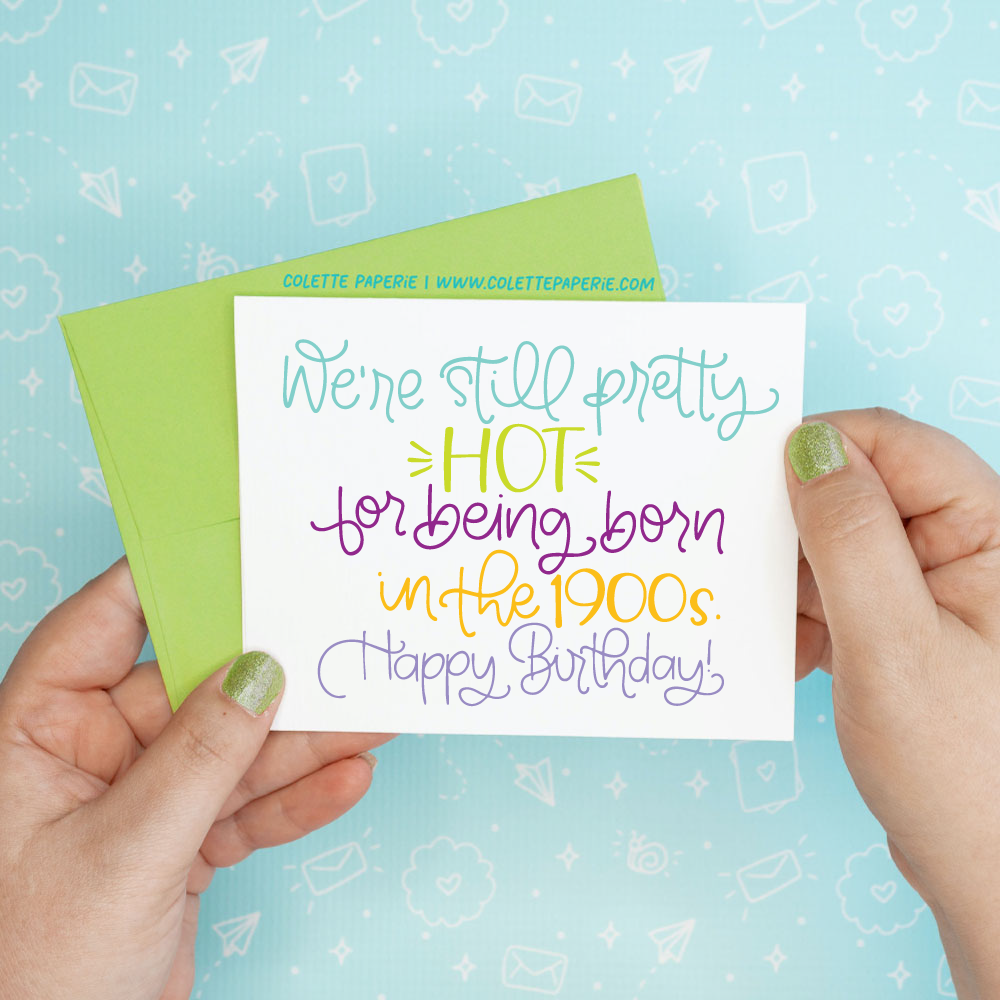 COLETTE PAPERiE | WWW.COLETTEPAPERiE.COM
We're still pretty
HOT
for being born
in the 1900s.
Happy Birthday!